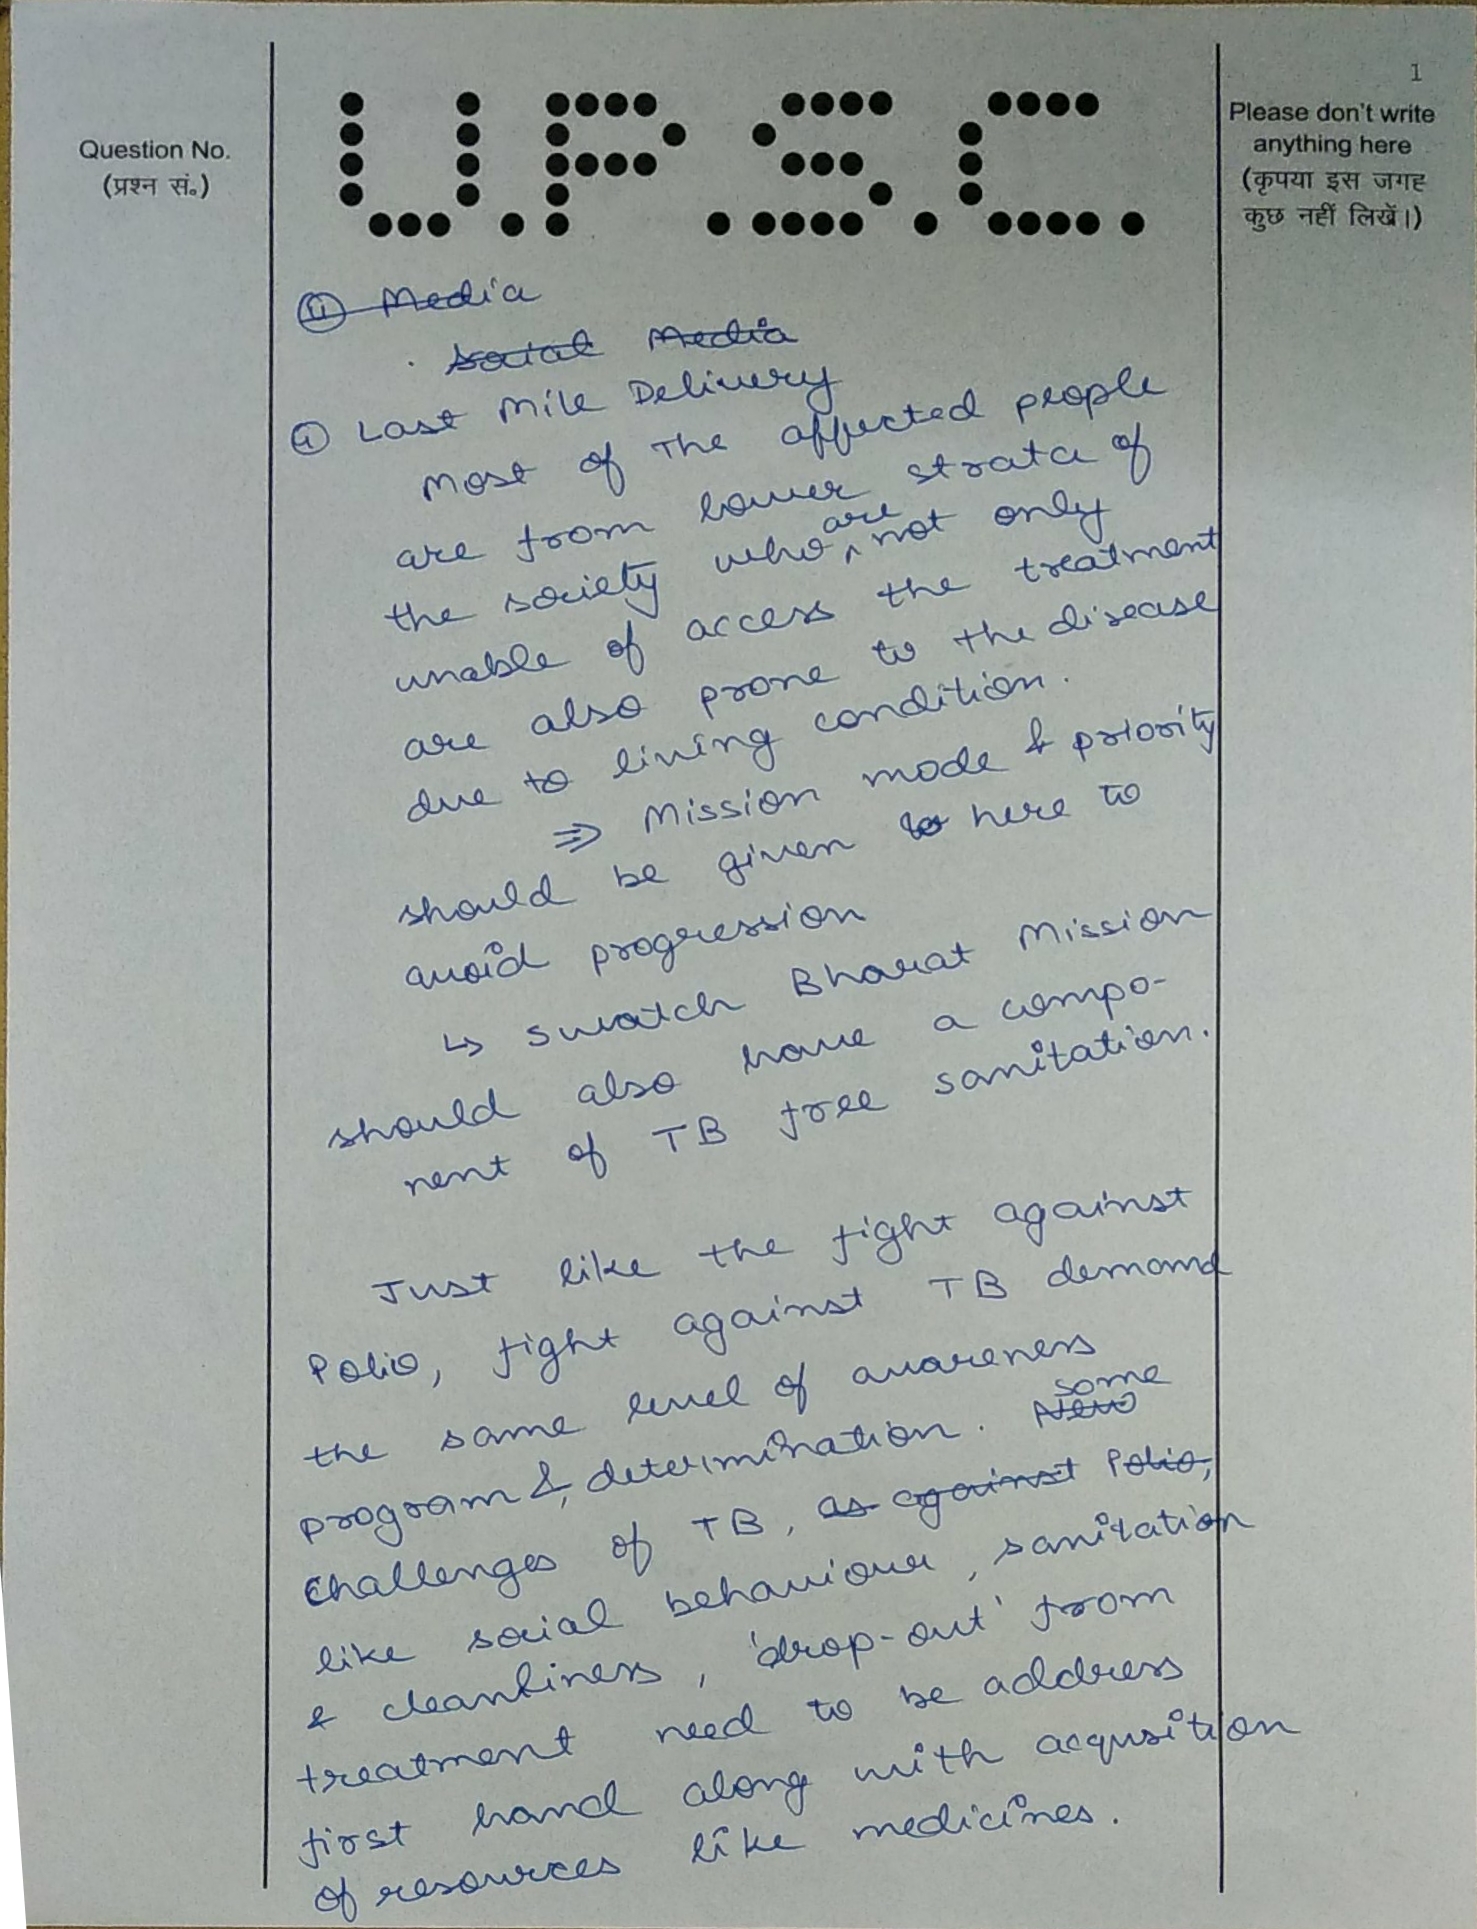 1
Question No.
(प्रश्न सं॰)
U.P.S.C.
Please don't write
anything here
(कृपया इस जगह
कुछ नहीं लिखें।)
Media
Social Media
Last Mile Delivery
Most of the affected people
are from lower strata of
the society who are not only
unable of access the treatment
are also prone to the disease
due to living condition.
⇒ Mission mode & priority
should be given to here to
avoid progression
↳ Swatch Bharat Mission
should also have a compo-
nent of TB free sanitation.
Just like the fight against
Polio, fight against TB demand
the same level of awareness
program &, determination. New some
challenges of TB, as against Polio,
like social behaviour, sanitation
& cleanliness, 'drop-out' from
treatment need to be address
first hand along with acqusition
of resources like medicines.